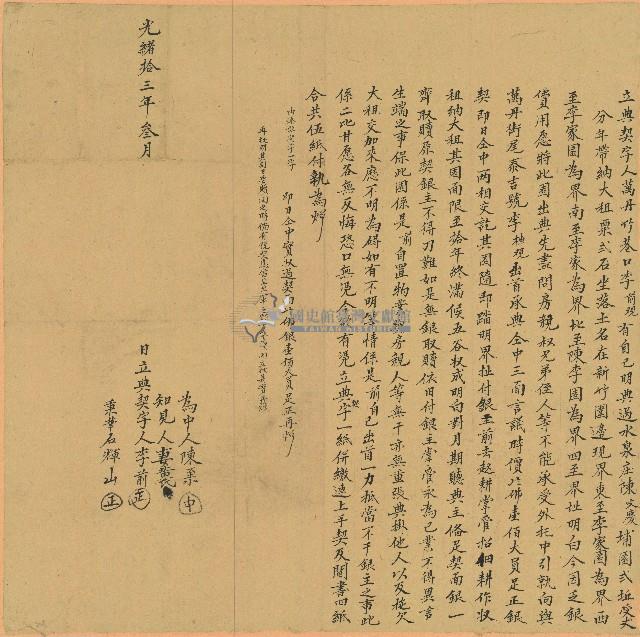 立典契字人萬丹竹巷口李前現有自己明典過水泉庄陳文慶埔園弍坵受丈
分年帶納大租粟弍石坐落土名在新竹圍邊現界東至李家園為界西
至李家園為界南至李家為界北至陳李園為界四至界址明白今因乏銀
費用愿將此園出典先盡問房親叔兄弟侄人等不能承受外托中引就向與
萬丹街尾泰吉號李 出首承典仝中三面言議時價 佛壹佰大員足正銀
契即日仝中兩相交訖其園隨即踏明界址付銀主前去起耕掌管招佃耕作收
租納大租其園面限至拾年終滿候五谷收成明白對月期聽典主俻足契面銀一
齊取贖原契銀主不得刁難如是無銀取贖依旧付銀主掌管永為己業不得異言
生端之事保此園係是前自置物業 房親人等無干亦無重張典掛他人以及拖欠
大租交加來歷不明為碍如有不明 情係是前自己出首一力抵當不干銀主之事此
係二比甘愿各無反悔恐口無憑今 有憑立典契字一紙併繳連上手契及鬮書四紙
合共伍紙付執為炤
即日仝中實收過契 佛銀壹佰大員足正再炤
國史館臺灣文獻館
TAIWAN HISTORICA
為中人陳栗
知見人妻黃氏
日立典契字人李前
秉筆石輝山
光緒拾三年叁月